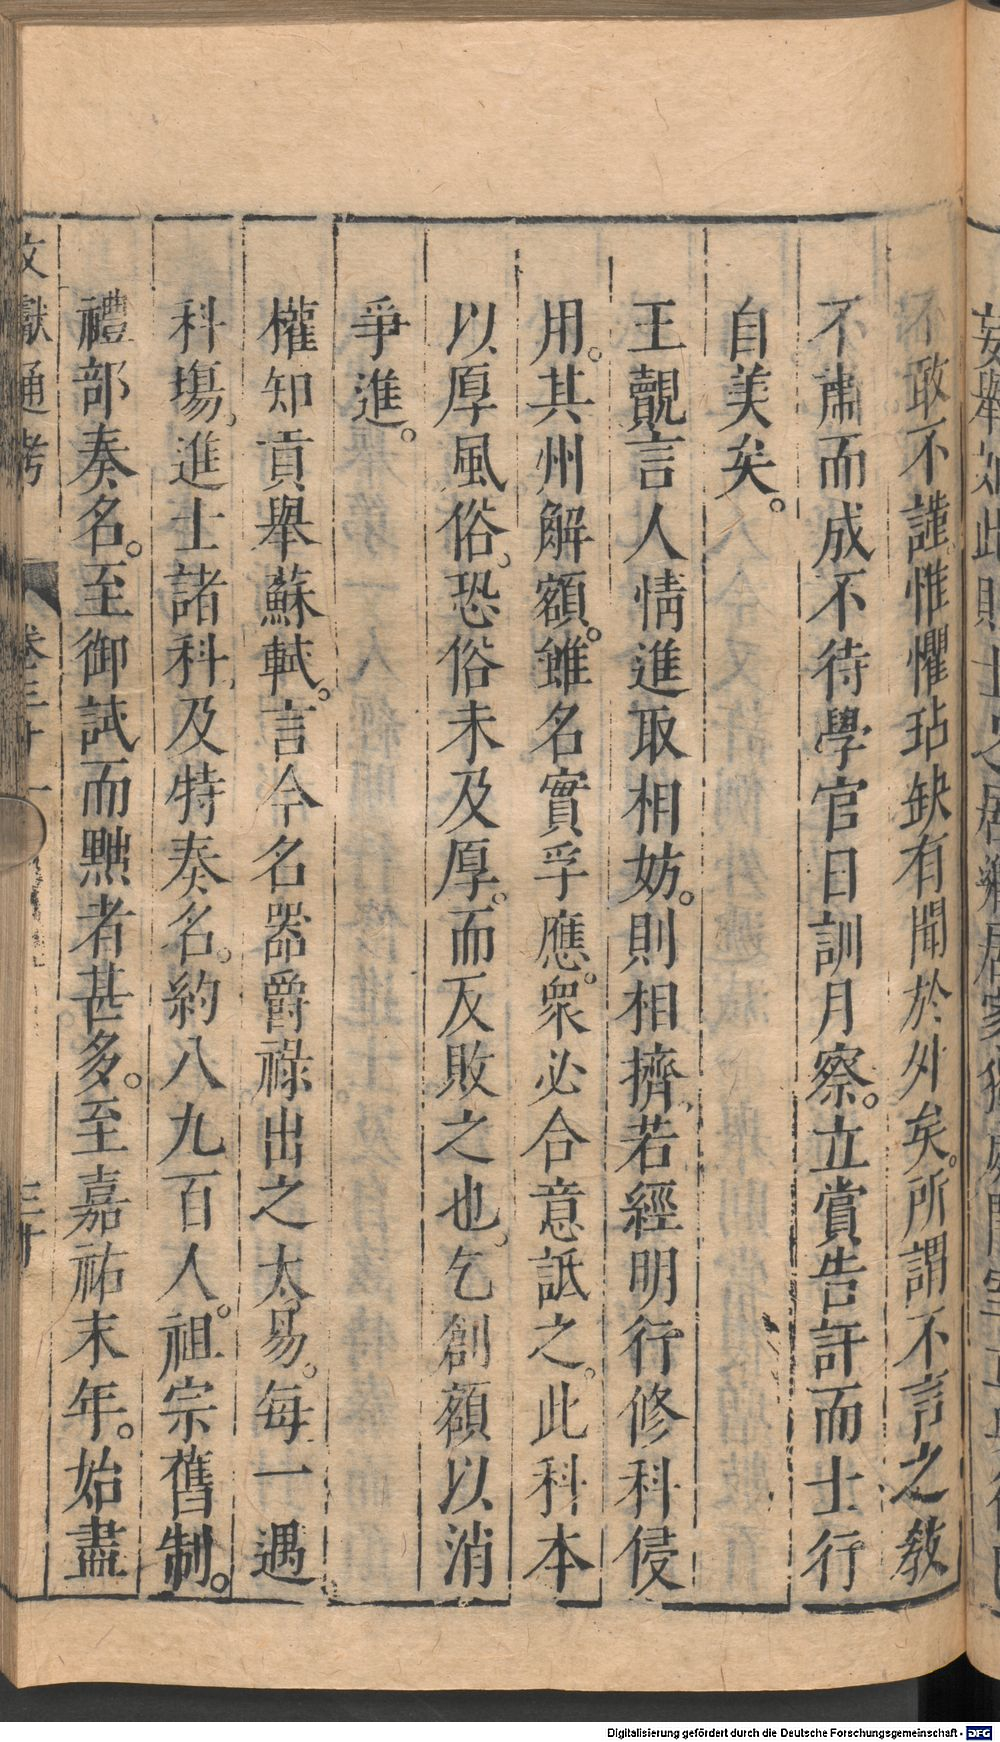 不敢不謹惟懼玷缺有聞於外矣。所謂不言之教
不肅而成不待學官日訓月察。立賞告訐而士行
自美矣。
王覿言人情進取相妨。則相擠,若經明行修科侵
用。其州解額。雖名實孚應。衆必合意詆之。此科本
以厚風俗,恐俗未及厚。而反敗之也,乞創額以消
爭進。
權知貢舉蘇軾。言今名器爵祿出之太易。每一遇
科塲,進士諸科,及特奏名。約八九百人。祖宗舊制。
禮部奏名。至御試而黜者甚多。至嘉祐末年。始盡
文獻通考 卷三十一 三十
Digitalisierung gefördert durch die Deutsche Forschungsgemeinschaft - DFG